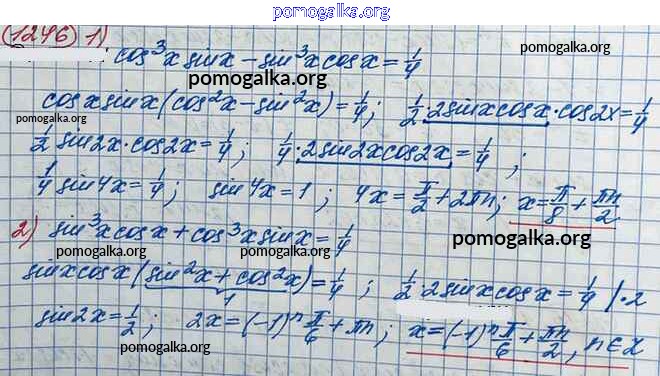 pomogalka.org
(1246) 1)
cos³x sinx - sin³x cosx = 1/4
pomogalka.org
cosx sinx (cos²x - sin²x) = 1/4; 1/2 · 2sinx cosx · cos2x = 1/4
pomogalka.org
pomogalka.org
1/2 sin2x · cos2x = 1/4; 1/4 · 2sin2x cos2x = 1/4;
1/4 sin4x = 1/4; sin4x = 1; 4x = π/2 + 2πn; x = π/8 + πn/2
2) sin³x cosx + cos³x sinx = 1/4
pomogalka.org
pomogalka.org
pomogalka.org
sinx cosx (sin²x + cos²x) = 1/4; 1/2 · 2sinx cosx = 1/4 / · 2
1
sin2x = 1/2; 2x = (-1)ⁿ π/6 + πn; x = (-1)ⁿ π/6 + πn/2, n ∈ Z
pomogalka.org
pomogalka.org